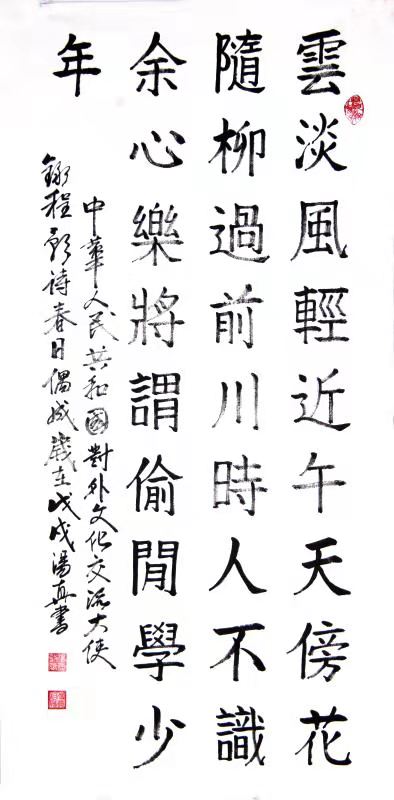 雲淡風輕近午天傍花
隨柳過前川時人不識
余心樂將謂偷閒學少
年
中華人民共和國對外文化交流大使
錄程颢詩春日偶成歲在戊戌湯真書